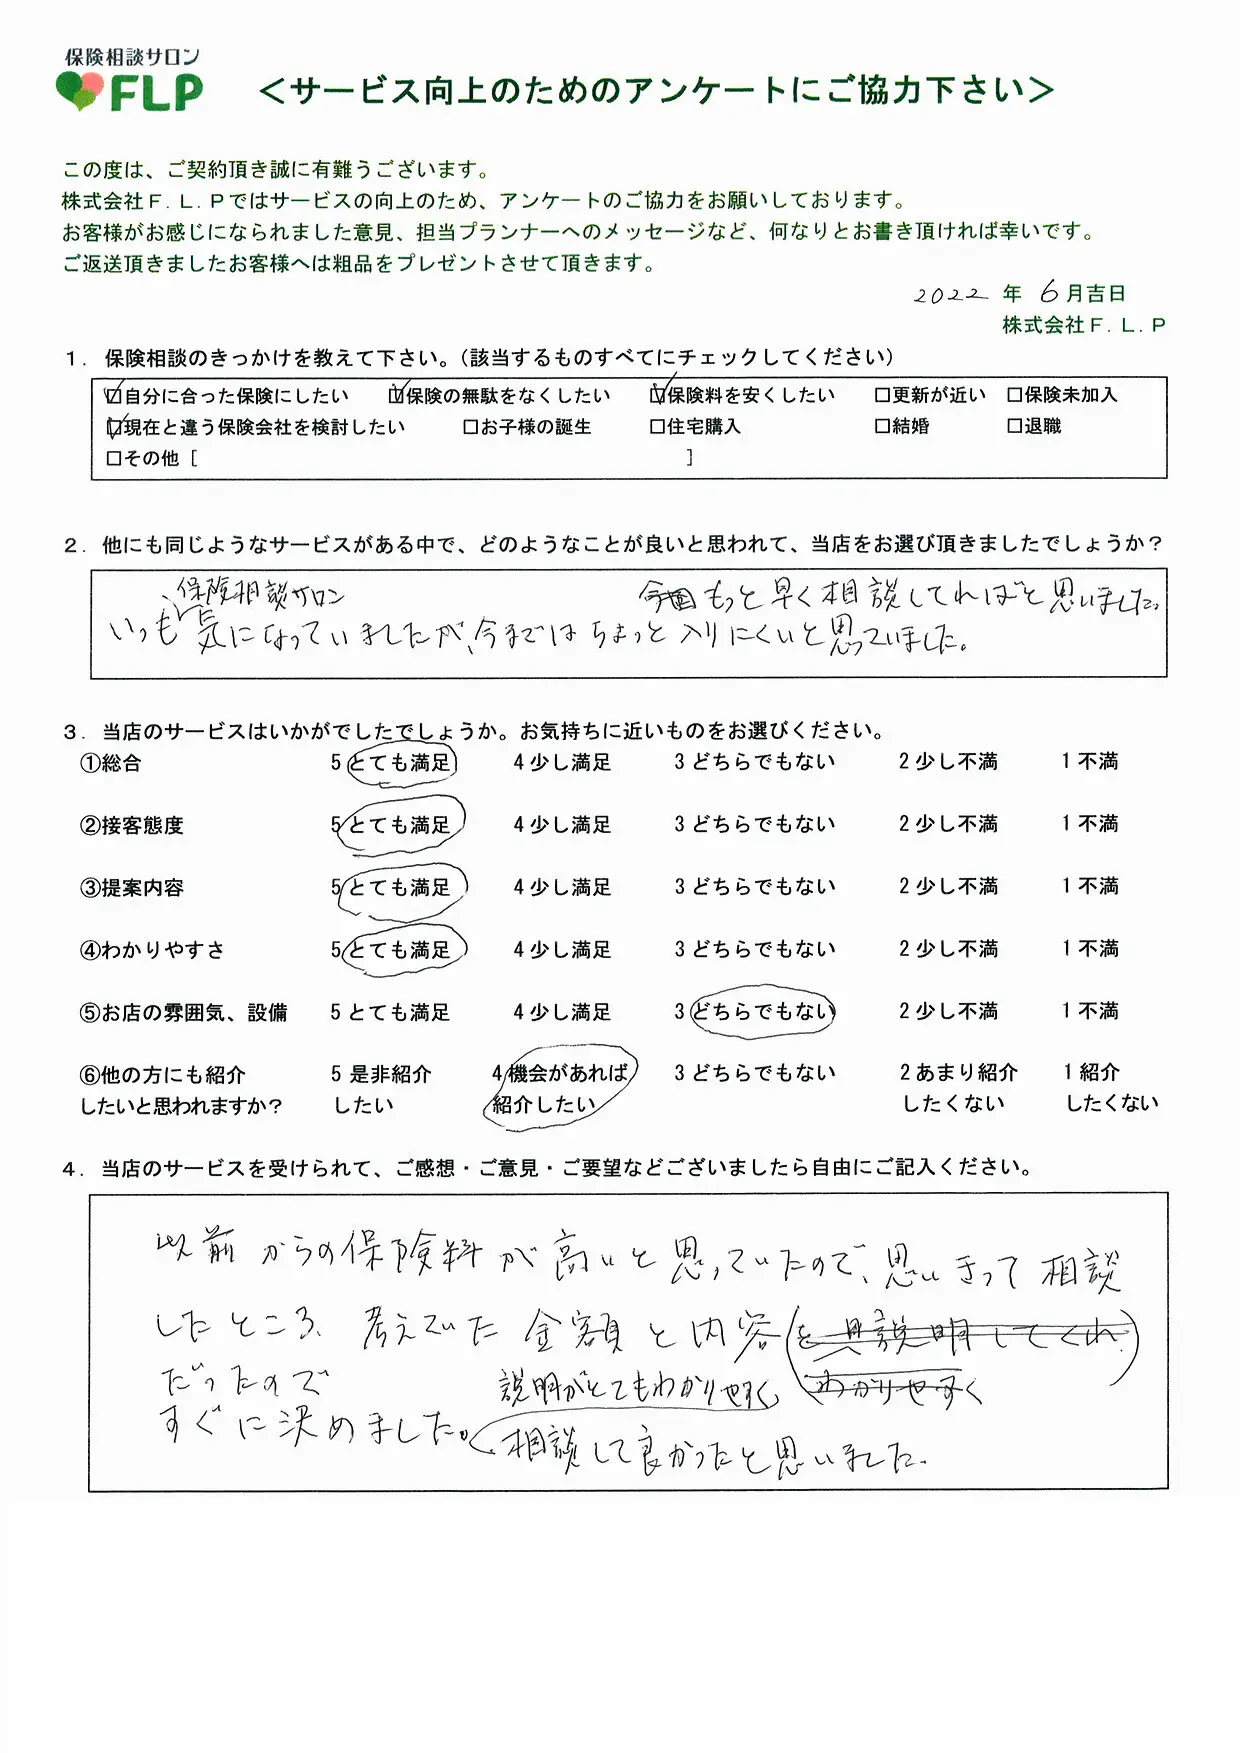 保険相談サロン
FLP
＜サービス向上のためのアンケートにご協力下さい＞
この度は、ご契約頂き誠に有難うございます。
株式会社Ｆ．Ｌ．Ｐではサービスの向上のため、アンケートのご協力をお願いしております。
お客様がお感じになられました意見、担当プランナーへのメッセージなど、何なりとお書き頂ければ幸いです。
ご返送頂きましたお客様へは粗品をプレゼントさせて頂きます。
2022 年 6 月吉日
株式会社Ｆ．Ｌ．Ｐ
１．保険相談のきっかけを教えて下さい。（該当するものすべてにチェックしてください）
☑自分に合った保険にしたい ☑保険の無駄をなくしたい ☑保険料を安くしたい □更新が近い □保険未加入
☑現在と違う保険会社を検討したい □お子様の誕生 □住宅購入 □結婚 □退職
□その他［ ］
２．他にも同じようなサービスがある中で、どのようなことが良いと思われて、当店をお選び頂きましたでしょうか？
保険相談サロン
いつも気になっていましたが、今まではちょっと入りにくいと思っていました。
今回もっと早く相談してればと思いました。
３．当店のサービスはいかがでしたでしょうか。お気持ちに近いものをお選びください。
①総合 5 とても満足 4 少し満足 3 どちらでもない 2 少し不満 1 不満
②接客態度 5 とても満足 4 少し満足 3 どちらでもない 2 少し不満 1 不満
③提案内容 5 とても満足 4 少し満足 3 どちらでもない 2 少し不満 1 不満
④わかりやすさ 5 とても満足 4 少し満足 3 どちらでもない 2 少し不満 1 不満
⑤お店の雰囲気、設備 5 とても満足 4 少し満足 3 どちらでもない 2 少し不満 1 不満
⑥他の方にも紹介 5 是非紹介 4 機会があれば 3 どちらでもない 2 あまり紹介 1 紹介
したいと思われますか？ したい 紹介したい したくない したくない
４．当店のサービスを受けられて、ご感想・ご意見・ご要望などございましたら自由にご記入ください。
以前からの保険料が高いと思っていたので、思いきって相談
したところ、考えていた金額と内容
だったので
すぐに決めました。
説明がとてもわかりやすく
相談して良かったと思いました。